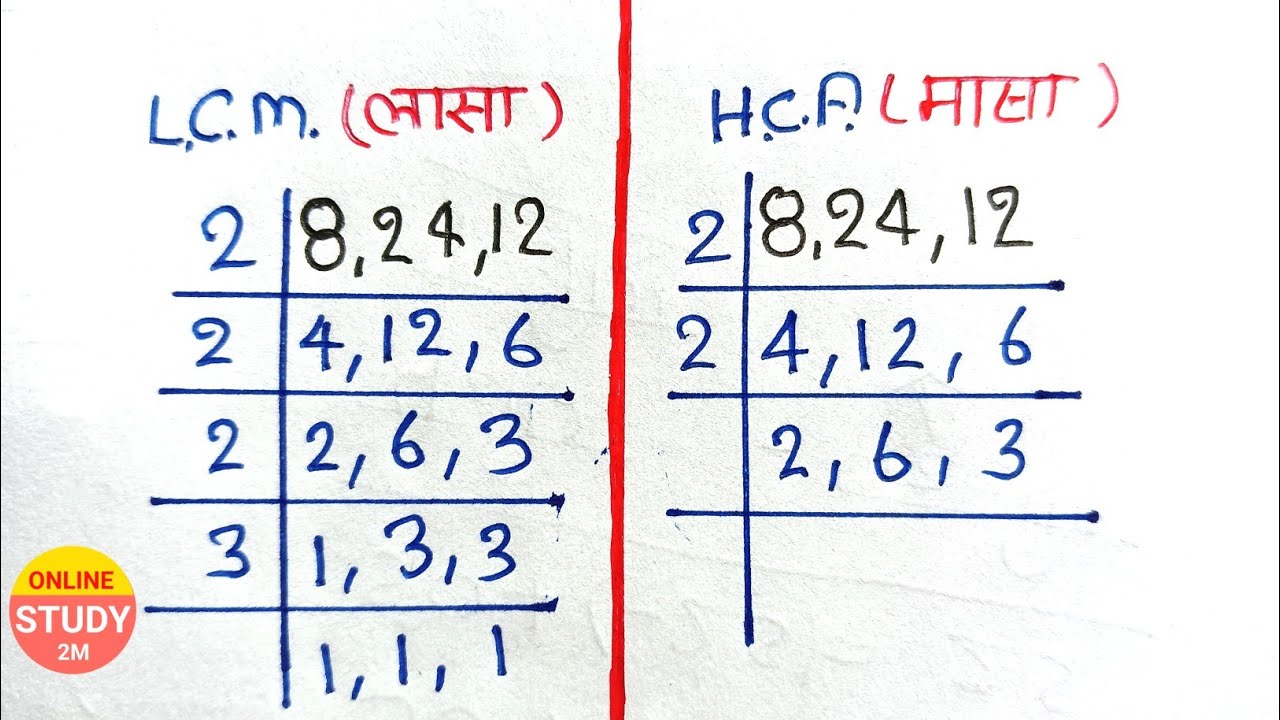 L.C.M. (लासा)
2 8,24,12
2 4,12,6
2 2,6,3
3 1,3,3
1,1,1
H.C.F. (मासा)
2 8,24,12
2 4,12,6
2,6,3
ONLINE
STUDY
2M